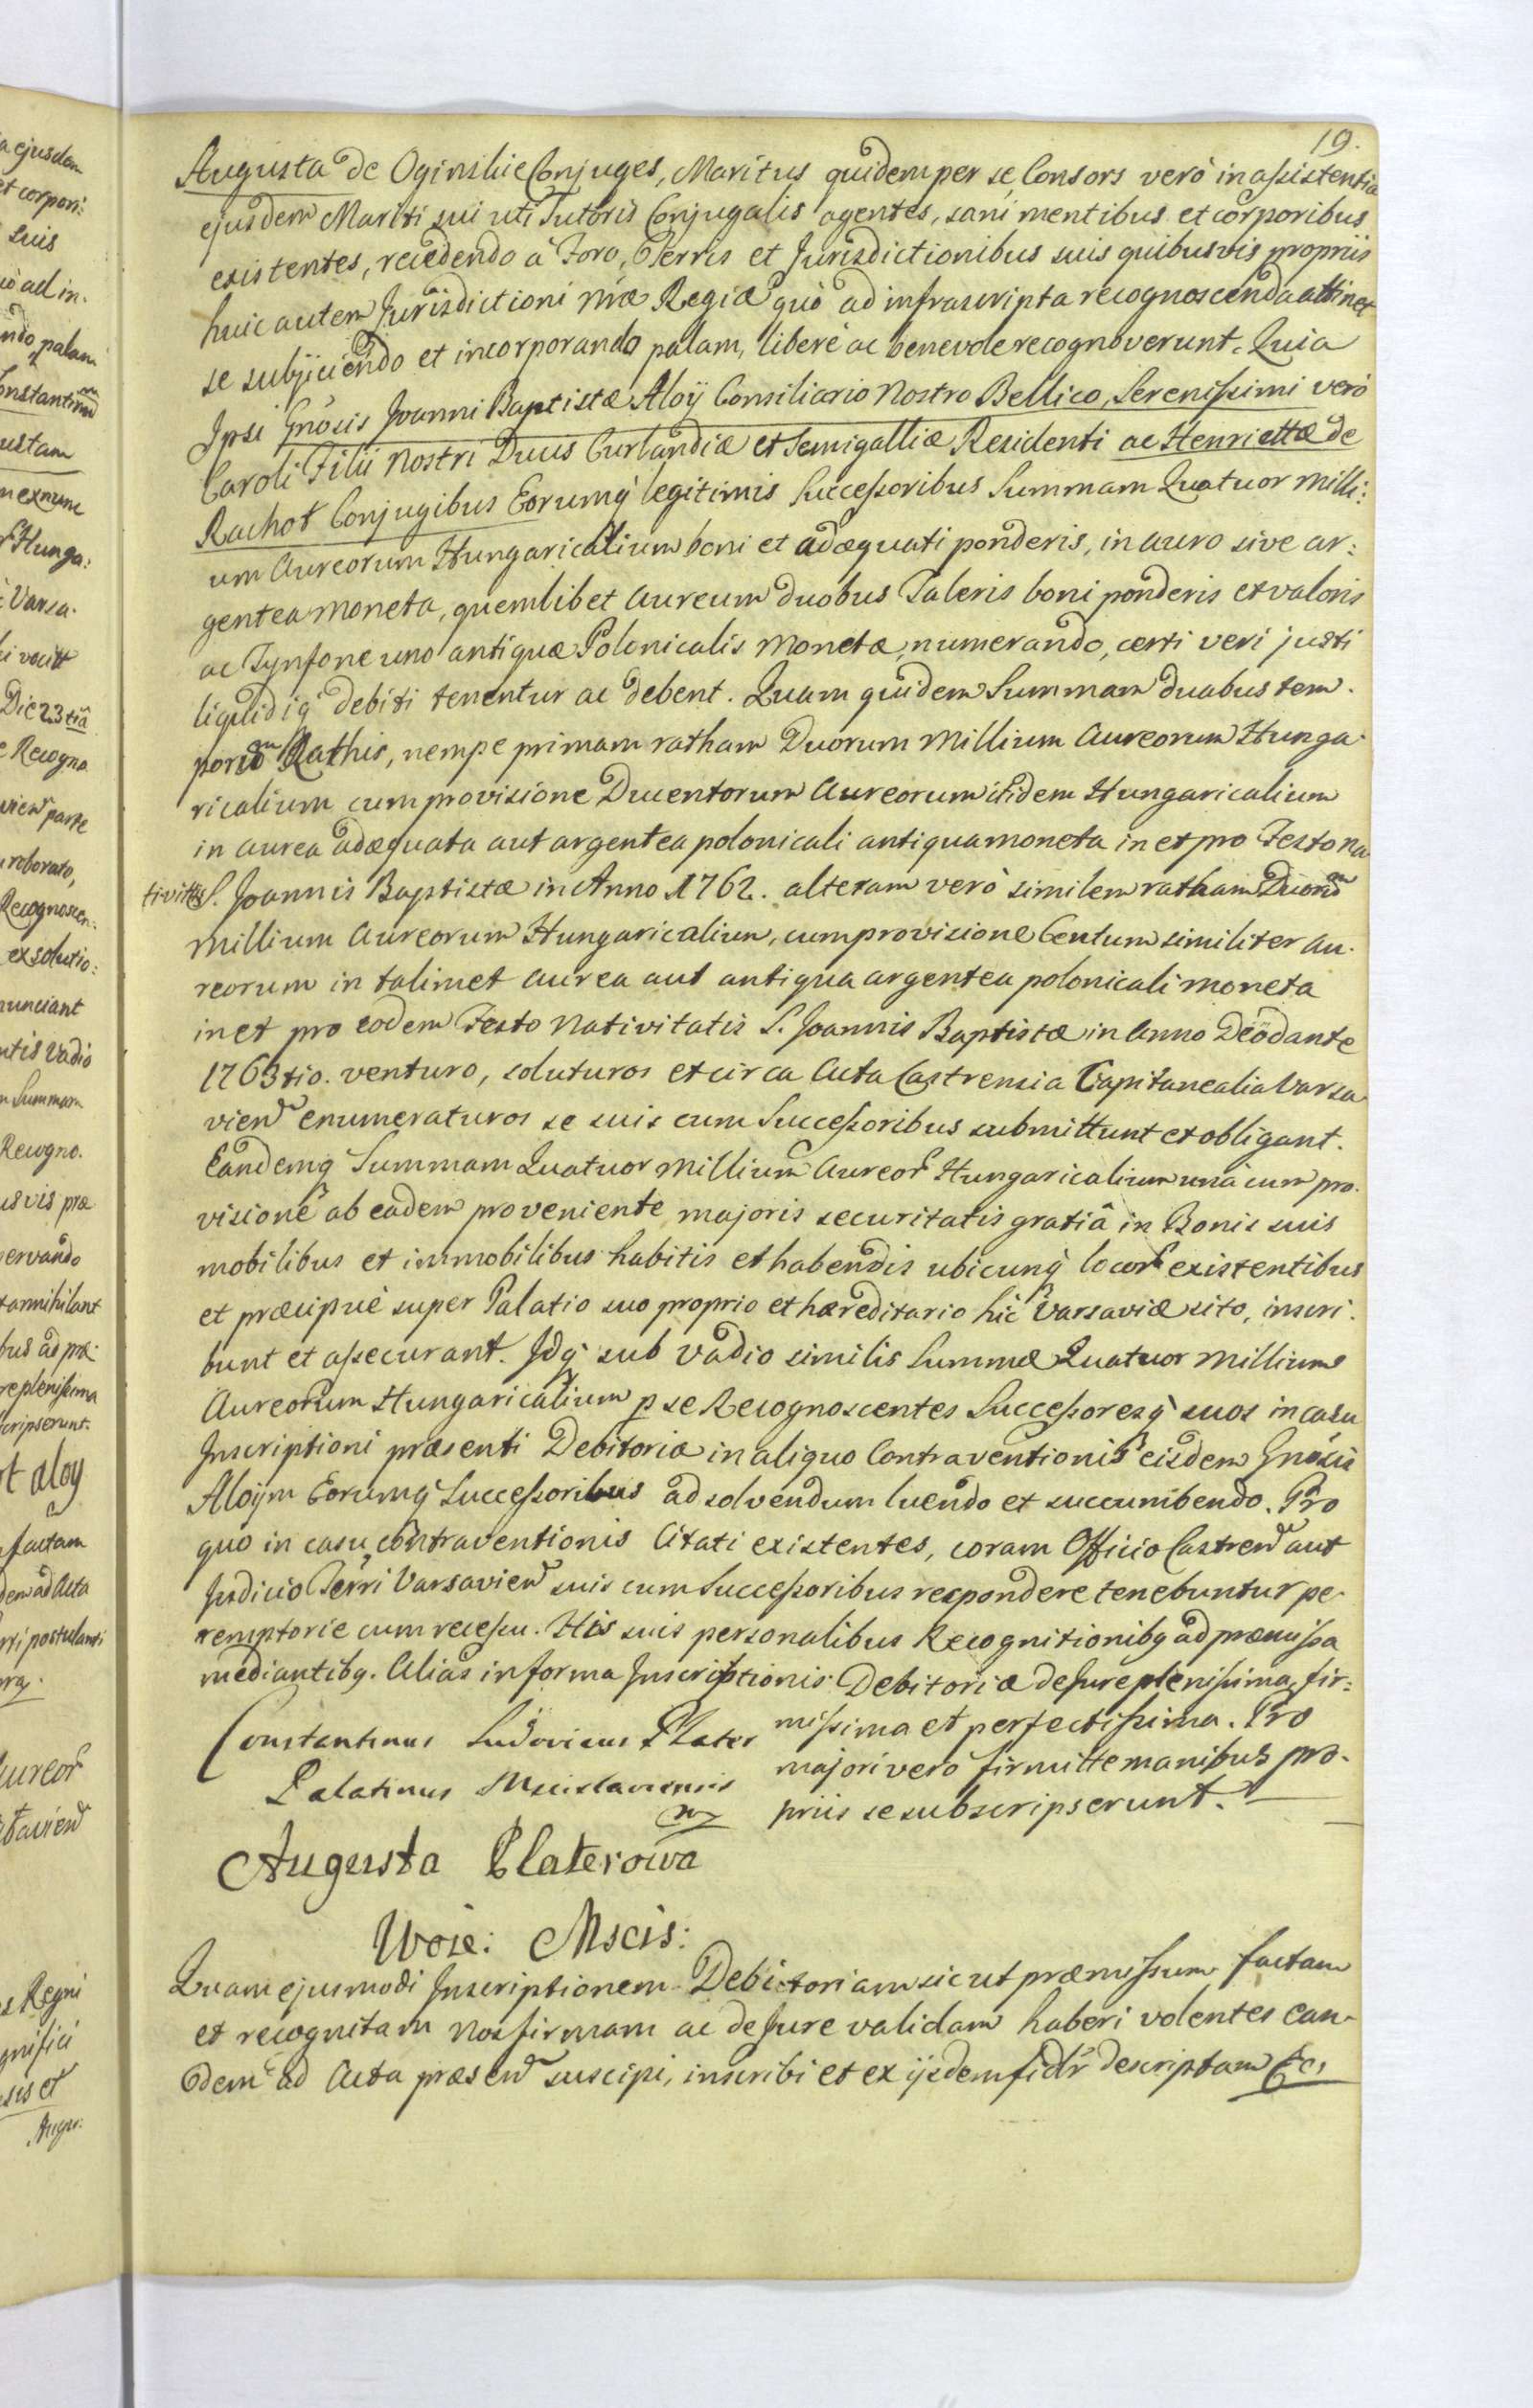 19.
Augusta de Oginskie Conjuges, Maritus quidem per se, Consors verò in aſsistentia
ejusdem Mariti sui uti Tutoris Conjugalis agentes, sani mentibus et corporibus
existentes, recedendo à Foro, Terris et Jurisdictionibus suis quibusvis propriis
huic autem Jurisdictioni nr̃æ Regiæ quò ad infrascripta recognoscenda attinet
se subjiciendo et incorporando palam, liberè ac benevole recognoverunt. Quia
Ipsi Gnõsis Joanni Baptistæ Aloÿ Consiliario Nostro Bellico, Sereniſsimi verò
Caroli Filii Nostri Ducis Curlandiæ et Semigalliæ Residenti ac Henriettæ de
Rachot Conjugibus Eorumq́ legitimis Succeſsoribus Summam Quatuor Milli:
um Aureorum Hungaricalium boni et adæquati ponderis, in auro sive ar:
gentea moneta, quemlibet Aureum duobus Taleris boni ponderis et valoris
ac Tynfone uno antiquæ Polonicalis Monetæ numerando, certi veri justi
liquidiq́ debiti tenentur ac debent. Quam quidem Summam duabus tem.
porũ Rathis, nempe primam ratham Duorum Millium Aureorum Hunga
ricalium cum provisione Ducentorum Aureorum itidem Hungaricalium
in aurea adæquata aut argentea polonicali antiqua moneta in et pro Festo Na
tivittis S. Joannis Baptistæ in Anno 1762. alteram verò similem ratham Duorũ
Millium Aureorum Hungaricalium, cum provisione Centum similiter Au.
reorum in talimet aurea aut antiqua argentea polonicali moneta
in et pro eodem Festo Nativitatis S. Joannis Baptistæ in Anno Deõ dante
1763tio. venturo, soluturos et circa Acta Castrensia Capitanealia Varsa
vien̄ enumeraturos se suis cum Succeſsoribus submittunt et obligant.
Eandemq́ Summam Quatuor Millium Aureor̃ Hungaricalium unà cum pro.
visione ab eadem proveniente majoris securitatis gratiâ in Bonis suis
mobilibus et immobilibus habitis et habendis ubicunq́ locor̃ existentibus
et præcipuè super Palatio suo proprio et hæreditario hic Varsaviæ sito, inscri.
bunt et aſsecurant. Idq́ sub vadio similis Summæ Quatuor Millium
Aureorum Hungaricalium p se Recognoscentes Succeſsoresq́ suos in casu
Inscriptioni præsenti Debitoriæ in aliquo Contraventionis eisdem Gnõsis
Aloÿm Eorumq́ Succeſsoribus ad solvendum luendo et succumbendo. Pro
quo in casu contraventionis Citati existentes, coram Officio Castren̄ aut
Judicio Terri Varsavien̄ suis cum Succeſsoribus respondere tenebuntur pe.
remptorie cum receſsu. His suis personalibus Recognitionibq ad præmiſsa
mediantibq. Alias in forma Inscriptionis Debitoriæ de Jure pleniſsima, fir:
miſsima et perfectiſsima. Pro
majori vero firmitte manibus pro.
priis se subscripserunt.
Constantinus Ludovicus Plater
Palatinus Mscislaviensis
Augusta Platerowa
Woie: Mscis:
Quam ejusmodi Inscriptionem Debitoriam sicut præmiſsum factam
et recognitam Nos firmam ac de Jure validam haberi volentes ean
dem ad Acta præsen̄ suscipi, inscribi et ex ijsdem fidr̃ descriptam Etc